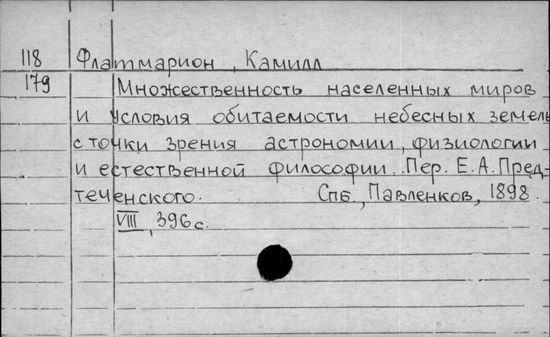 118 Фламмарион, Камилл
179 Множественность населенных миров
и условия обитаемости небесных земель
с точки зрения астрономии, физиологии
и естественной философии. Пер. Е.А.Пред-
теченского. Спб., Павленков, 1898.
VIII, 396 с.